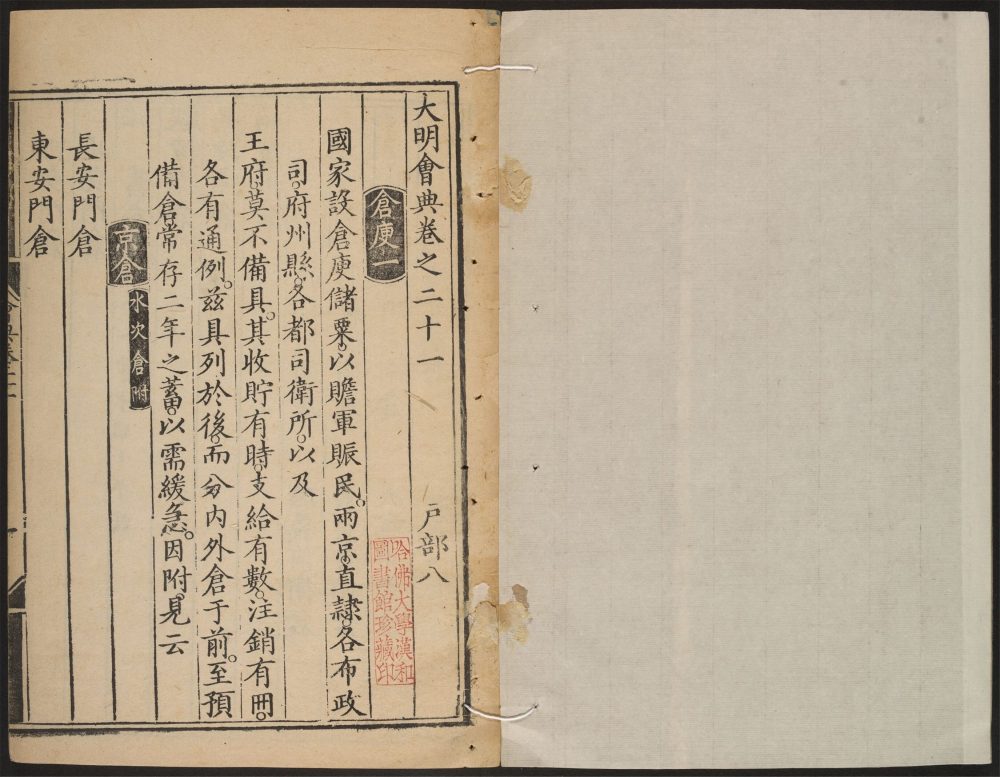 大明會典卷之二十一
戶部八
倉庾一
國家設倉庾儲粟。以贍軍賑民。兩京直隸。各布政
司。府州縣。各都司衛所。以及
王府。莫不備具。其收貯有時。支給有數。注銷有冊。
各有通例。茲具列於後。而分內外倉于前。至預
備倉常存二年之蓄。以需緩急。因附見云
京倉 水次倉附
長安門倉
東安門倉
哈佛大學漢和
圖書館珍藏印